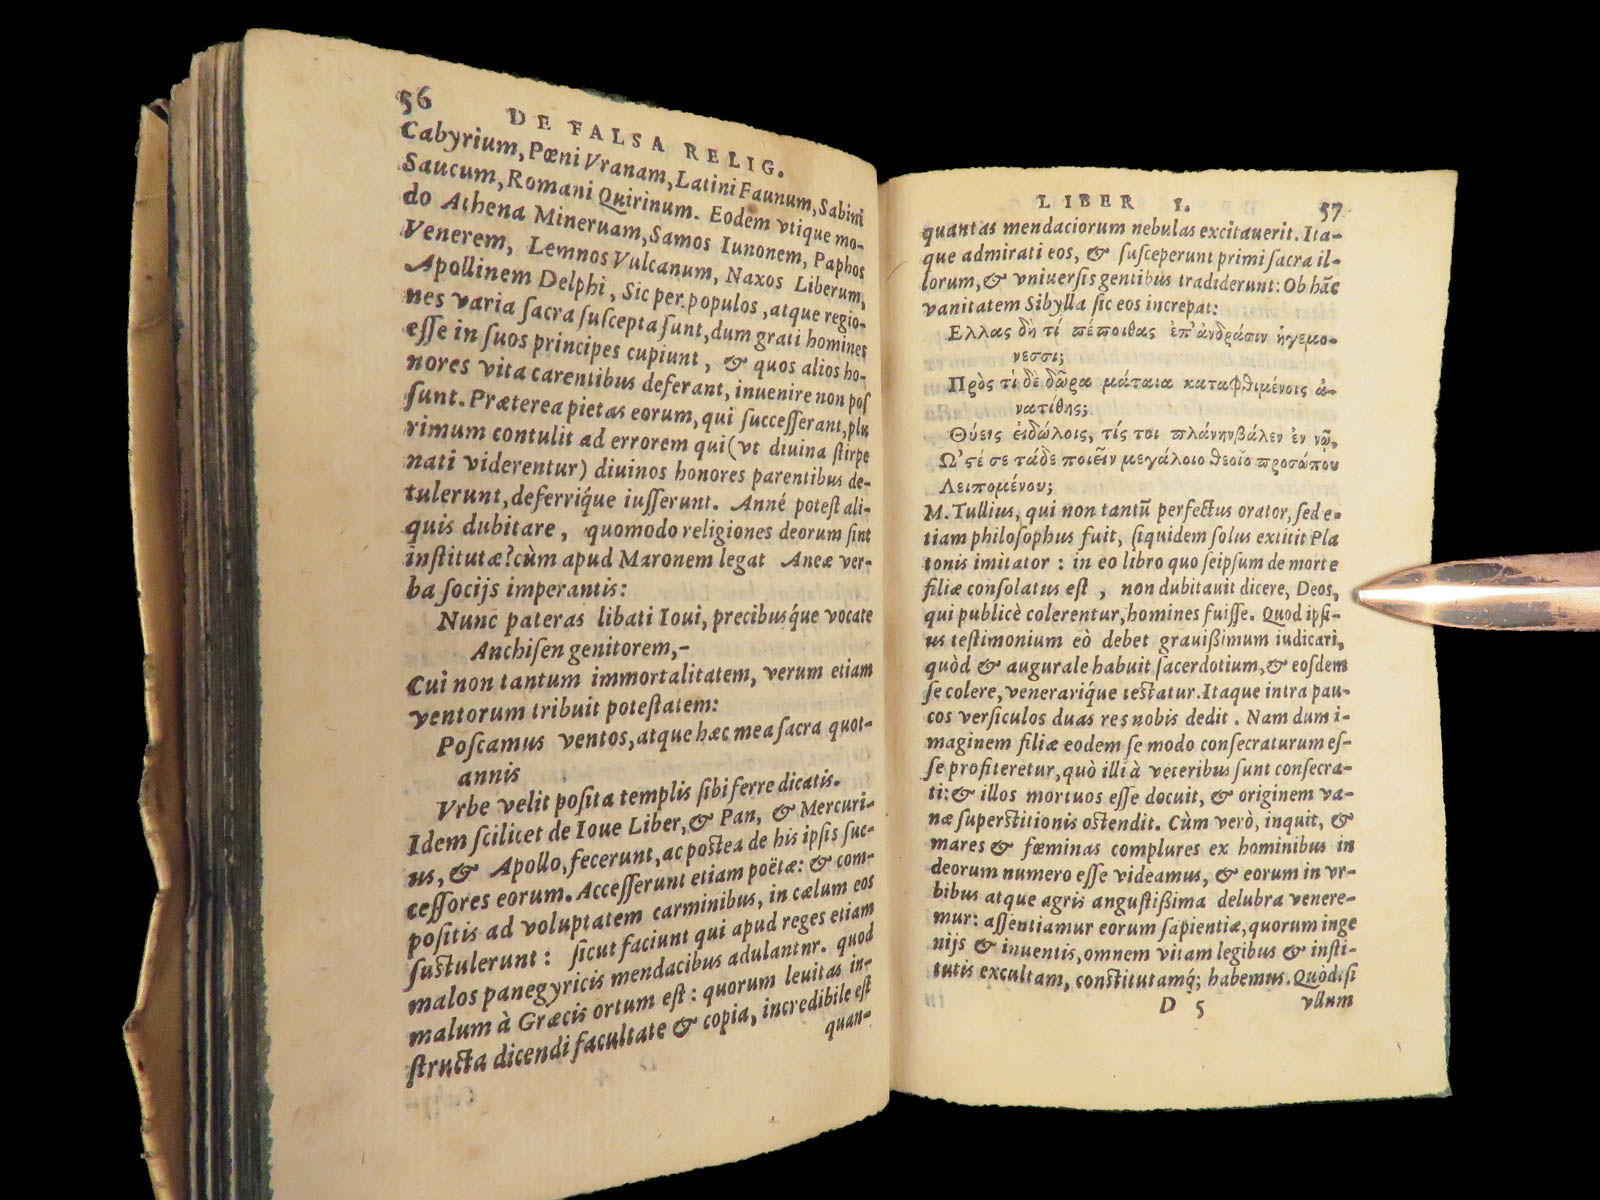 56
DE FALSA RELIG.
Cabyrium, Pœni Vranam, Latini Faunum, Sabini
Saucum, Romani Quirinum. Eodem vtique mo-
do Athena Mineruam, Samos Iunonem, Paphos
Venerem, Lemnos Vulcanum, Naxos Liberum,
Apollinem Delphi, Sic per populos, atque regio-
nes varia ſacra ſuſcepta ſunt, dum grati homines
eſſe in ſuos principes cupiunt, & quos alios ho-
nores vita carentibus deferant, inuenire non poſ
ſunt. Præterea pietas eorum, qui ſucceſſerant, plu
rimum contulit ad errorem qui (vt diuina ſtirpe
nati viderentur) diuinos honores parentibus de-
tulerunt, deferriq́ue iuſſerunt. Anné poteſt ali-
quis dubitare, quomodo religiones deorum ſint
inſtitutæ? cùm apud Maronem legat Aneæ ver-
ba ſocijs imperantis:
Nunc pateras libati Ioui, precibusq́ue vocate
Anchiſen genitorem,-
Cui non tantum immortalitatem, verum etiam
ventorum tribuit poteſtatem:
Poſcamus ventos, atque hæc mea ſacra quot-
annis
Vrbe velit poſita templis ſibi ferre dicatis.
Idem ſcilicet de Ioue Liber, & Pan, & Mercuri-
us, & Apollo, fecerunt, ac poſtea de his ipſis ſuc-
ceſſores eorum. Acceſſerunt etiam poëtæ: & com-
poſitis ad voluptatem carminibus, in cælum eos
ſuſtulerunt: ſicut faciunt qui apud reges etiam
malos panegyricis mendacibus adulantnr. quod
malum à Græcis ortum eſt: quorum leuitas in-
ſtructa dicendi facultate & copia, incredibile eſt
quan-
LIBER I. 57
quantas mendaciorum nebulas excitauerit. Ita-
que admirati eos, & ſuſceperunt primi ſacra il-
lorum, & vniuerſis gentibus tradiderunt: Ob hãc
vanitatem Sibylla ſic eos increpat:
Ελλας δὴ τί πέποιθας ἐπ' ἀνδράσιν ἡγεμο-
νεσσι;
Πρὸς τί δὲ δῶρα μάταια καταφθιμένοις ἀ-
νατίθης;
Θύεις εἰδώλοις, τίς τοι πλάνην βάλεν ἐν νῷ,
Ω'ςέ σε τάδε ποιεῖν μεγάλοιο θεοῖο προσώπου
Λειπομένου;
M. Tullius, qui non tantũ perfectus orator, ſed e-
tiam philoſophus fuit, ſiquidem ſolus extitit Pla
tonis imitator: in eo libro quo ſeipſum de morte
filiæ conſolatus eſt, non dubitauit dicere, Deos,
qui publicè colerentur, homines fuiſſe. Quod ipſi-
us teſtimonium eò debet grauißimum iudicari,
quòd & augurale habuit ſacerdotium, & eoſdem
ſe colere, venerariq́ue teſtatur. Itaque intra pau-
cos verſiculos duas res nobis dedit. Nam dum i-
maginem filiæ eodem ſe modo conſecraturum eſ-
ſe profiteretur, quò illi à veteribus ſunt conſecra-
ti: & illos mortuos eſſe docuit, & originem va-
næ superſtitionis oſtendit. Cùm verò, inquit, &
mares & fœminas complures ex hominibus in
deorum numero eſſe videamus, & eorum in vr-
bibus atque agris anguſtißima delubra venere-
mur: aſſentiamur eorum ſapientiæ, quorum inge
nijs & inuentis, omnem vitam legibus & inſti-
tutis excultam, conſtitutamq́; habemus. Quòd ſi
D 5 vllum